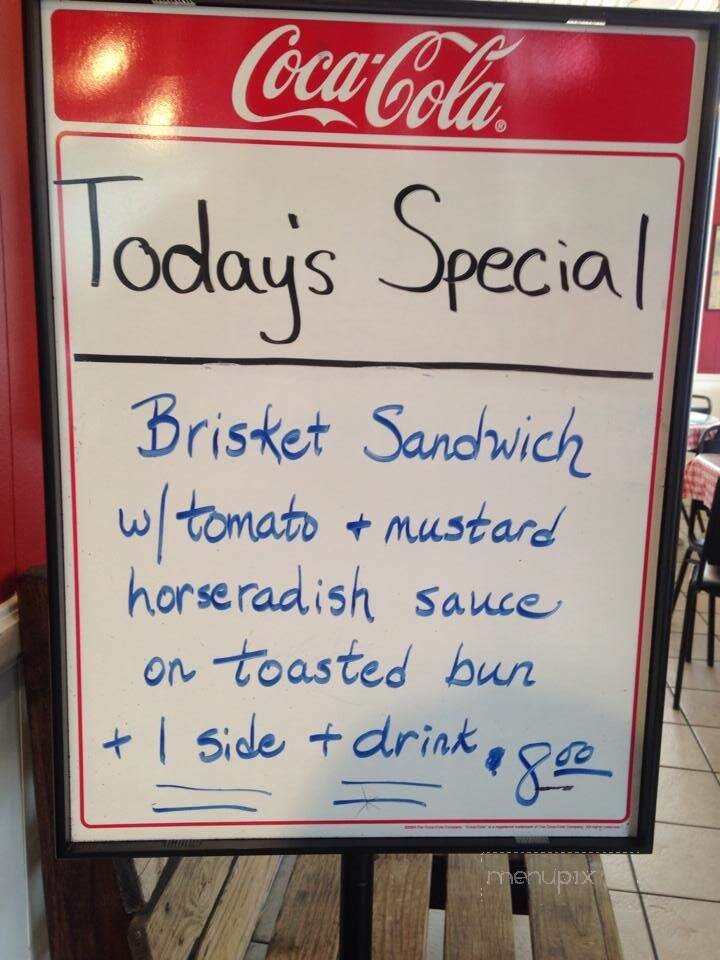 Coca-Cola®
Today's Special
Brisket Sandwich
w/ tomato + mustard
horseradish sauce
on toasted bun
+ 1 side + drink 8.00
menupix